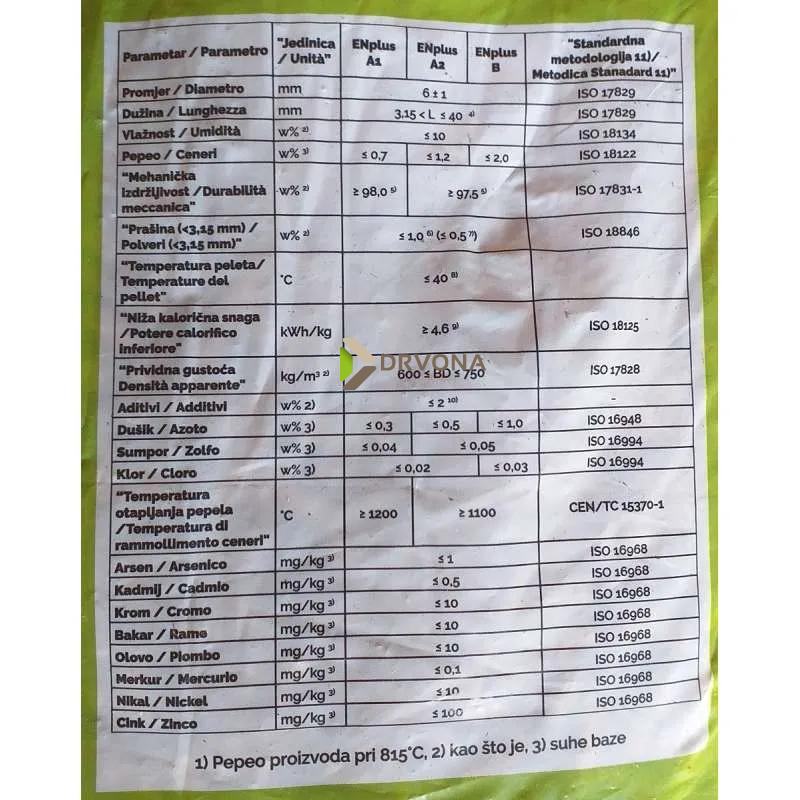 Parametar / Parametro "Jedinica / Unità" ENplus A1 ENplus A2 ENplus B "Standardna metodologija 11)/ Metodica Stanadard 11)"
Promjer / Diametro mm 6 ± 1 ISO 17829
Dužina / Lunghezza mm 3,15 < L ≤ 40 4) ISO 17829
Vlažnost / Umidità w% 2) ≤ 10 ISO 18134
Pepeo / Ceneri w% 3) ≤ 0,7 ≤ 1,2 ≤ 2,0 ISO 18122
"Mehanička
izdržljivost /Durabilità w% 2) ≥ 98,0 5) ≥ 97,5 5) ISO 17831-1
meccanica"
"Prašina (<3,15 mm) /
Polveri (<3,15 mm)" w% 2) ≤ 1,0 6) (≤ 0,5 7)) ISO 18846
"Temperatura peleta/
Temperature del °C ≤ 40 8)
pellet"
"Niža kalorična snaga
/Potere calorifico kWh/kg ≥ 4,6 9) ISO 18125
inferiore"
DRVONA
"Prividna gustoća
Densità apparente" kg/m³ 2) 600 ≤ BD ≤ 750 ISO 17828
Aditivi / Additivi w% 2) ≤ 2 10) -
Dušik / Azoto w% 3) ≤ 0,3 ≤ 0,5 ≤ 1,0 ISO 16948
Sumpor / Zolfo w% 3) ≤ 0,04 ≤ 0,05 ISO 16994
Klor / Cloro w% 3) ≤ 0,02 ≤ 0,03 ISO 16994
"Temperatura
otapljanja pepela
/Temperatura di °C ≥ 1200 ≥ 1100 CEN/TC 15370-1
rammollimento ceneri"
Arsen / Arsenico mg/kg 3) ≤ 1 ISO 16968
Kadmij / Cadmio mg/kg 3) ≤ 0,5 ISO 16968
Krom / Cromo mg/kg 3) ≤ 10 ISO 16968
Bakar / Rame mg/kg 3) ≤ 10 ISO 16968
Olovo / Piombo mg/kg 3) ≤ 10 ISO 16968
Merkur / Mercurio mg/kg 3) ≤ 0,1 ISO 16968
Nikal / Nickel mg/kg 3) ≤ 10 ISO 16968
Cink / Zinco mg/kg 3) ≤ 100 ISO 16968
1) Pepeo proizvoda pri 815°C, 2) kao što je, 3) suhe baze